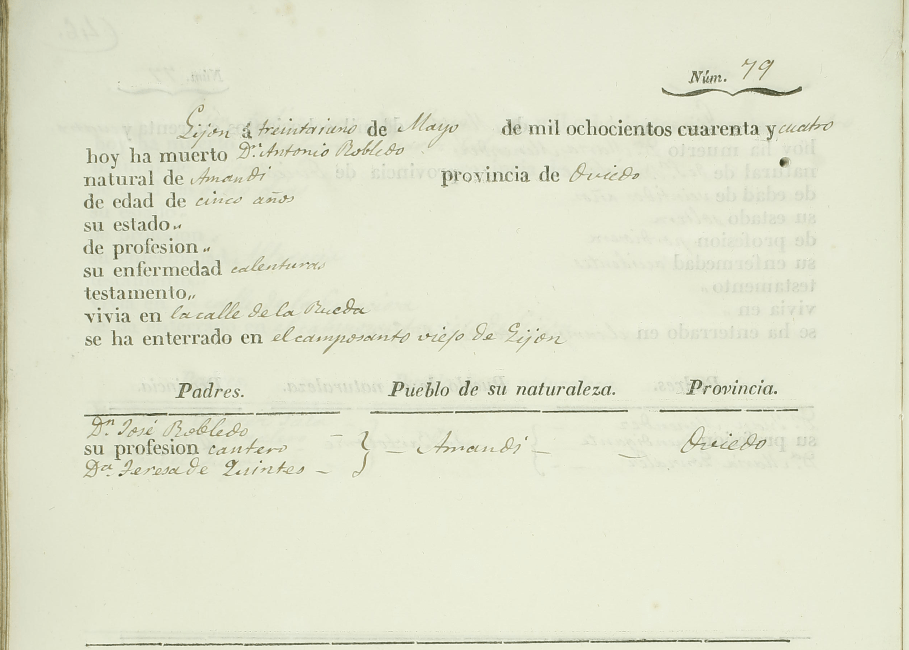 Núm. 79
Gijon á treintaiuno de Mayo de mil ochocientos cuarenta y cuatro
hoy ha muerto Dn. Antonio Robledo
natural de Amandi provincia de Oviedo
de edad de cinco años
su estado „
de profesion „
su enfermedad calenturas
testamento „
vivia en la calle de la Rueda
se ha enterrado en el camposanto viejo de Gijon
Padres. Pueblo de su naturaleza. Provincia.
Dn. José Robledo
su profesion cantero – } – Amandi – – Oviedo
Da. Teresa de Quintes –